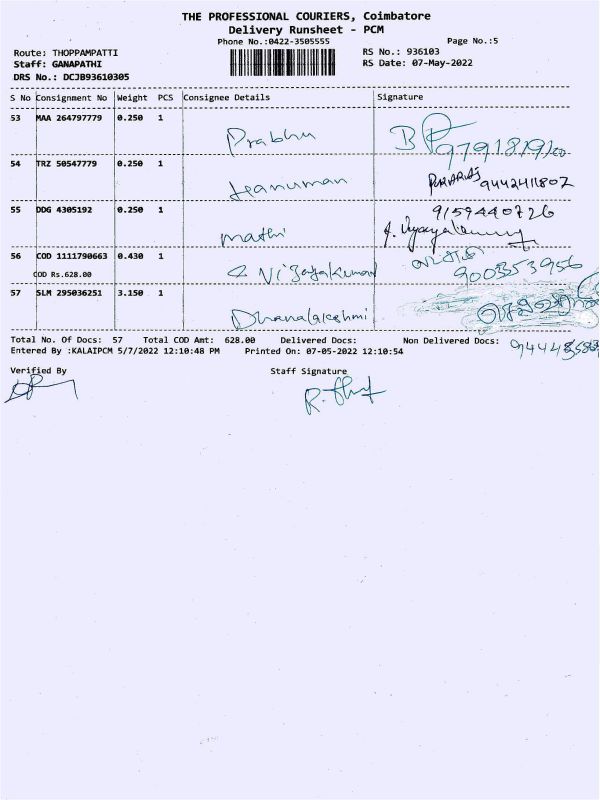 THE PROFESSIONAL COURIERS, Coimbatore
Delivery Runsheet - PCM
Phone No.:0422-3505555 Page No.:5
Route: THOPPAMPATTI RS No.: 936103
Staff: GANAPATHI RS Date: 07-May-2022
DRS No.: DCJB93610305
S No Consignment No Weight PCS Consignee Details Signature
53 MAA 264797779 0.250 1 Prabhu
54 TRZ 50547779 0.250 1 Hanuman 9442411807
55 DDG 4305192 0.250 1 mathi 9159440726
56 COD 1111790663 0.430 1 S Vijayakumar 9003553956
COD Rs.628.00
57 SLM 295036251 3.150 1 Dhanalakshmi
Total No. Of Docs: 57 Total COD Amt: 628.00 Delivered Docs: Non Delivered Docs:
Entered By :KALAIPCM 5/7/2022 12:10:48 PM Printed On: 07-05-2022 12:10:54
Verified By Staff Signature